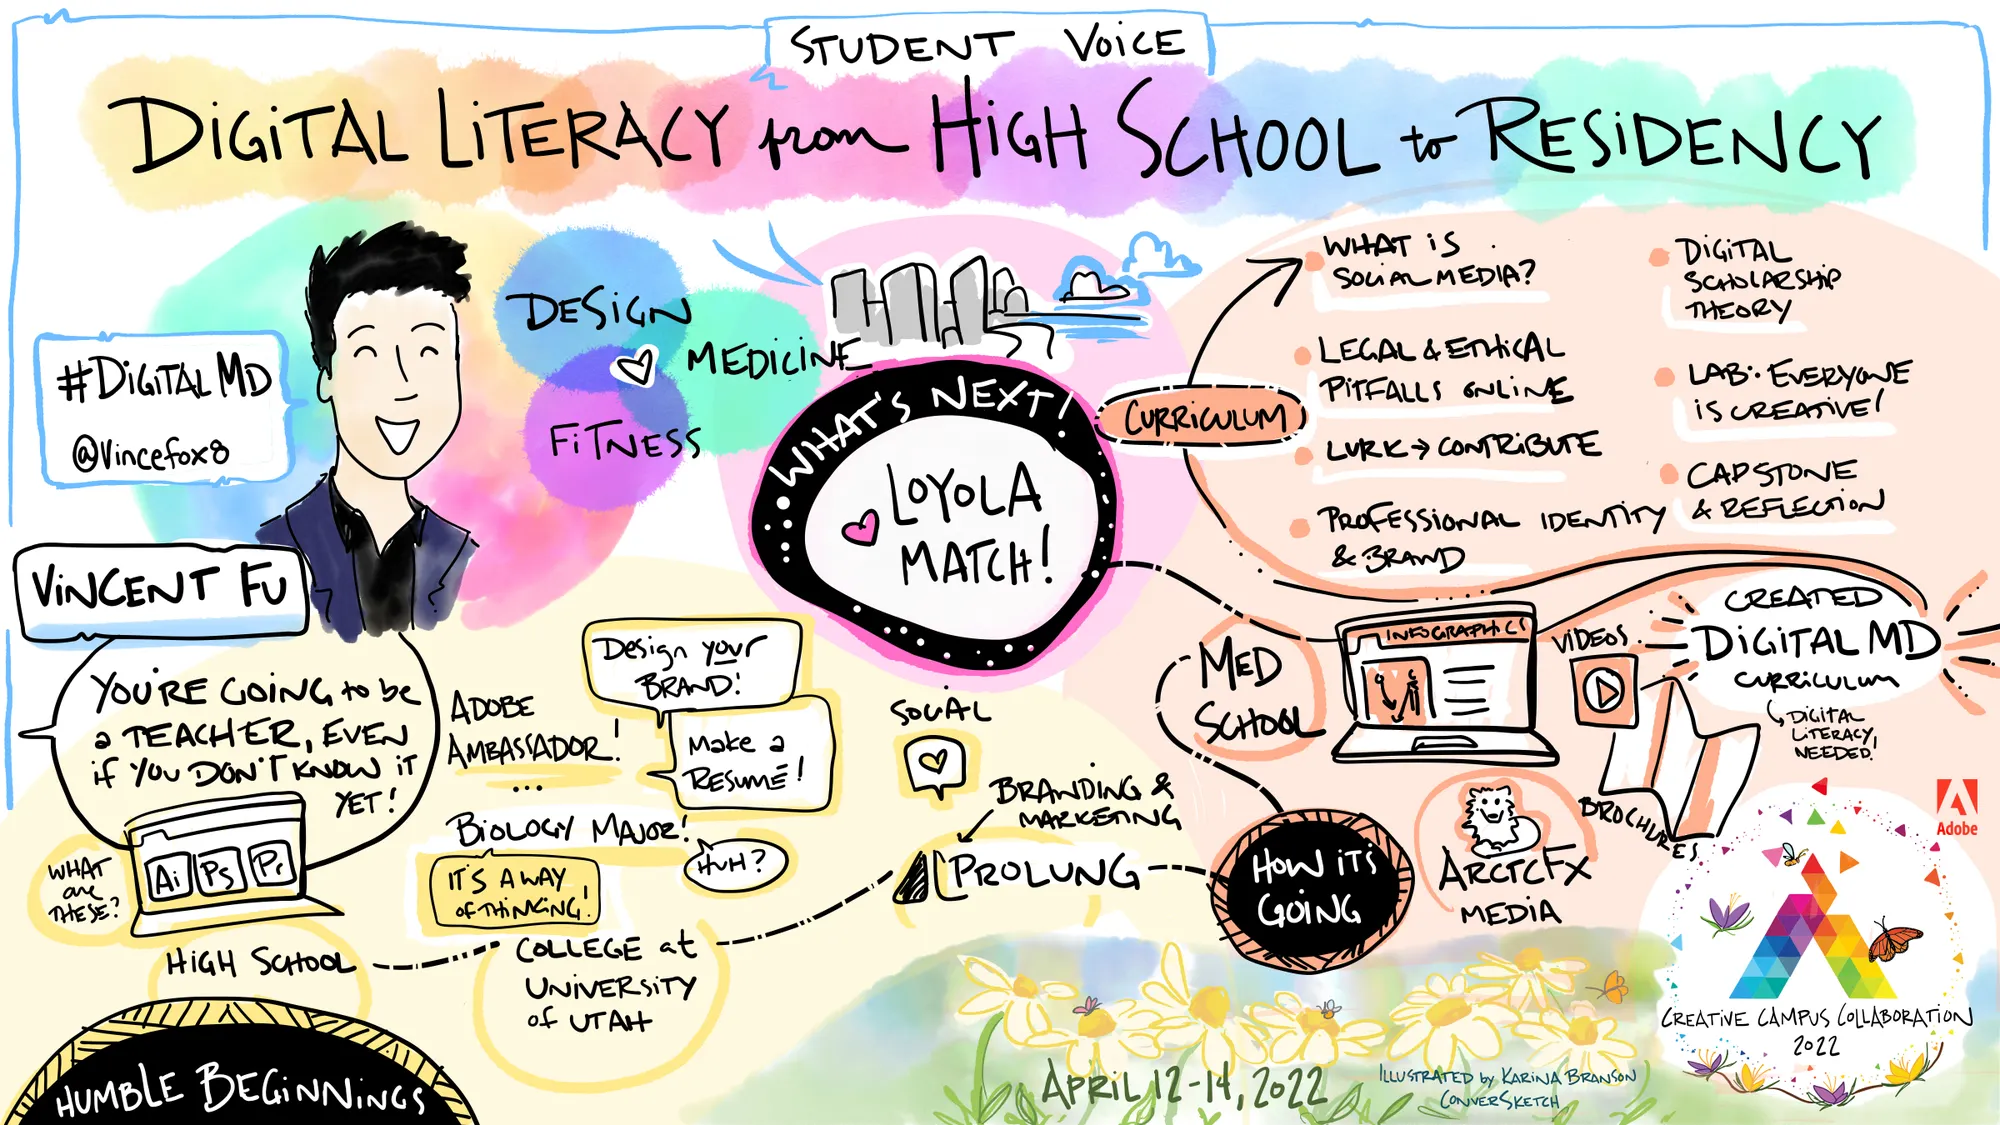 STUDENT VOICE
DIGITAL LITERACY from HIGH SCHOOL to RESIDENCY
#DIGITAL MD
@Vincefox8
VINCENT FU
DESIGN
MEDICINE
FITNESS
YOU'RE GOING to be
a TEACHER, EVEN
if YOU DON'T KNOW IT
YET!
WHAT
are
THESE?
Ai
Ps
Pr
HIGH SCHOOL
HUMBLE BEGINNINGS
ADOBE
AMBASSADOR!
...
Design your
BRAND!
Make a
RESUMÉ!
BIOLOGY MAJOR!
HUH?
IT'S A WAY
of THINKING!
COLLEGE at
UNIVERSITY
of UTAH
SOCIAL
BRANDING &
MARKETING
PROLUNG
HOW IT'S
GOING
MED
SCHOOL
INFOGRAPHICS
VIDEOS
BROCHURES
ARCTCFX
MEDIA
CREATED
DIGITAL MD
CURRICULUM
DIGITAL
LITERACY
NEEDED!
WHAT'S NEXT!
LOYOLA
MATCH!
CURRICULUM
WHAT IS
SOCIAL MEDIA?
LEGAL & ETHICAL
PITFALLS ONLINE
LURK → CONTRIBUTE
PROFESSIONAL IDENTITY
& BRAND
DIGITAL
SCHOLARSHIP
THEORY
LAB: EVERYONE
IS CREATIVE!
CAPSTONE
& REFLECTION
Adobe
CREATIVE CAMPUS COLLABORATION
2022
APRIL 12-14, 2022
ILLUSTRATED by KARINA BRANSON
CONVERSKETCH